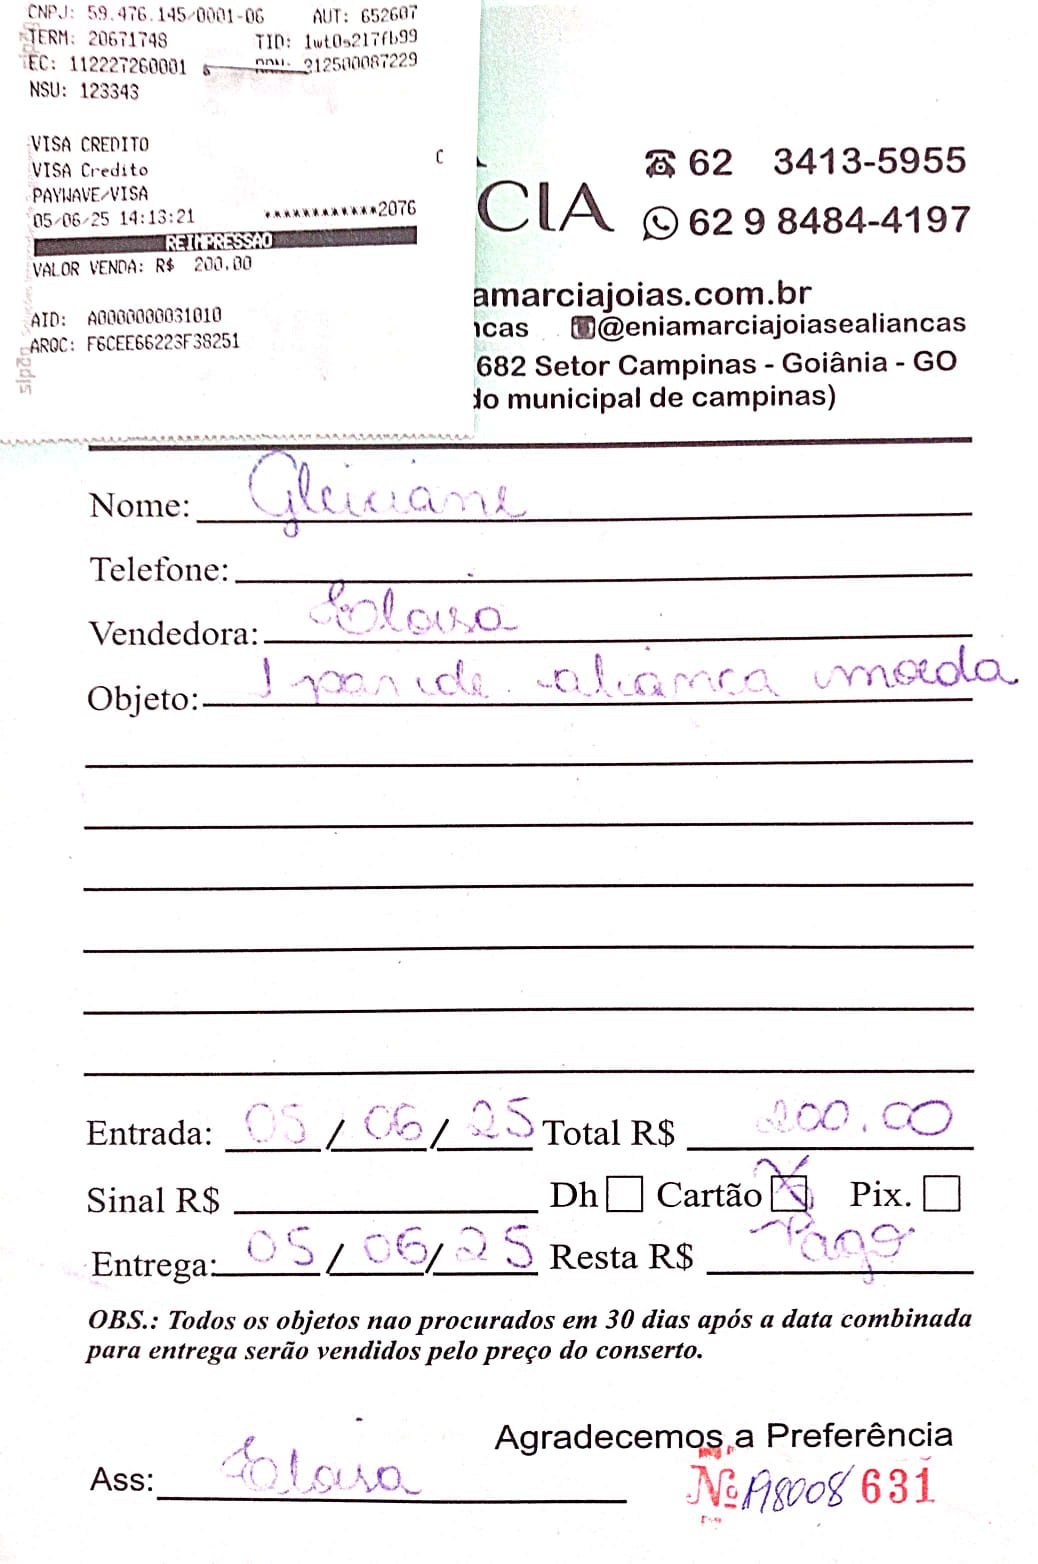 CNPJ: 59.476.145/0001-06 AUT: 652607
TERM: 20671748 TID: 1wt0s217fb99
EC: 112227260001 312500087229
NSU: 123343
VISA CREDITO C
VISA Credito
PAYWAVE/VISA
05/06/25 14:13:21 ************2076
REIMPRESSAO
VALOR VENDA: R$ 200,00
AID: A0000000031010
ARQC: F6CEE66223F38251
62 3413-5955
CIA
62 9 8484-4197
amarciajoias.com.br
ncas @eniamarciajoiasealiancas
682 Setor Campinas - Goiânia - GO
do municipal de campinas)
Nome: Gleiciane
Telefone:
Vendedora: Eloisa
Objeto: 1 par de aliança moeda
Entrada: 05/06/25 Total R$ 200.00
Sinal R$ Dh Cartão X Pix.
Entrega: 05/06/25 Resta R$ Pago
OBS.: Todos os objetos nao procurados em 30 dias após a data combinada
para entrega serão vendidos pelo preço do conserto.
Agradecemos a Preferência
Ass: Eloisa
Nº A8008 631